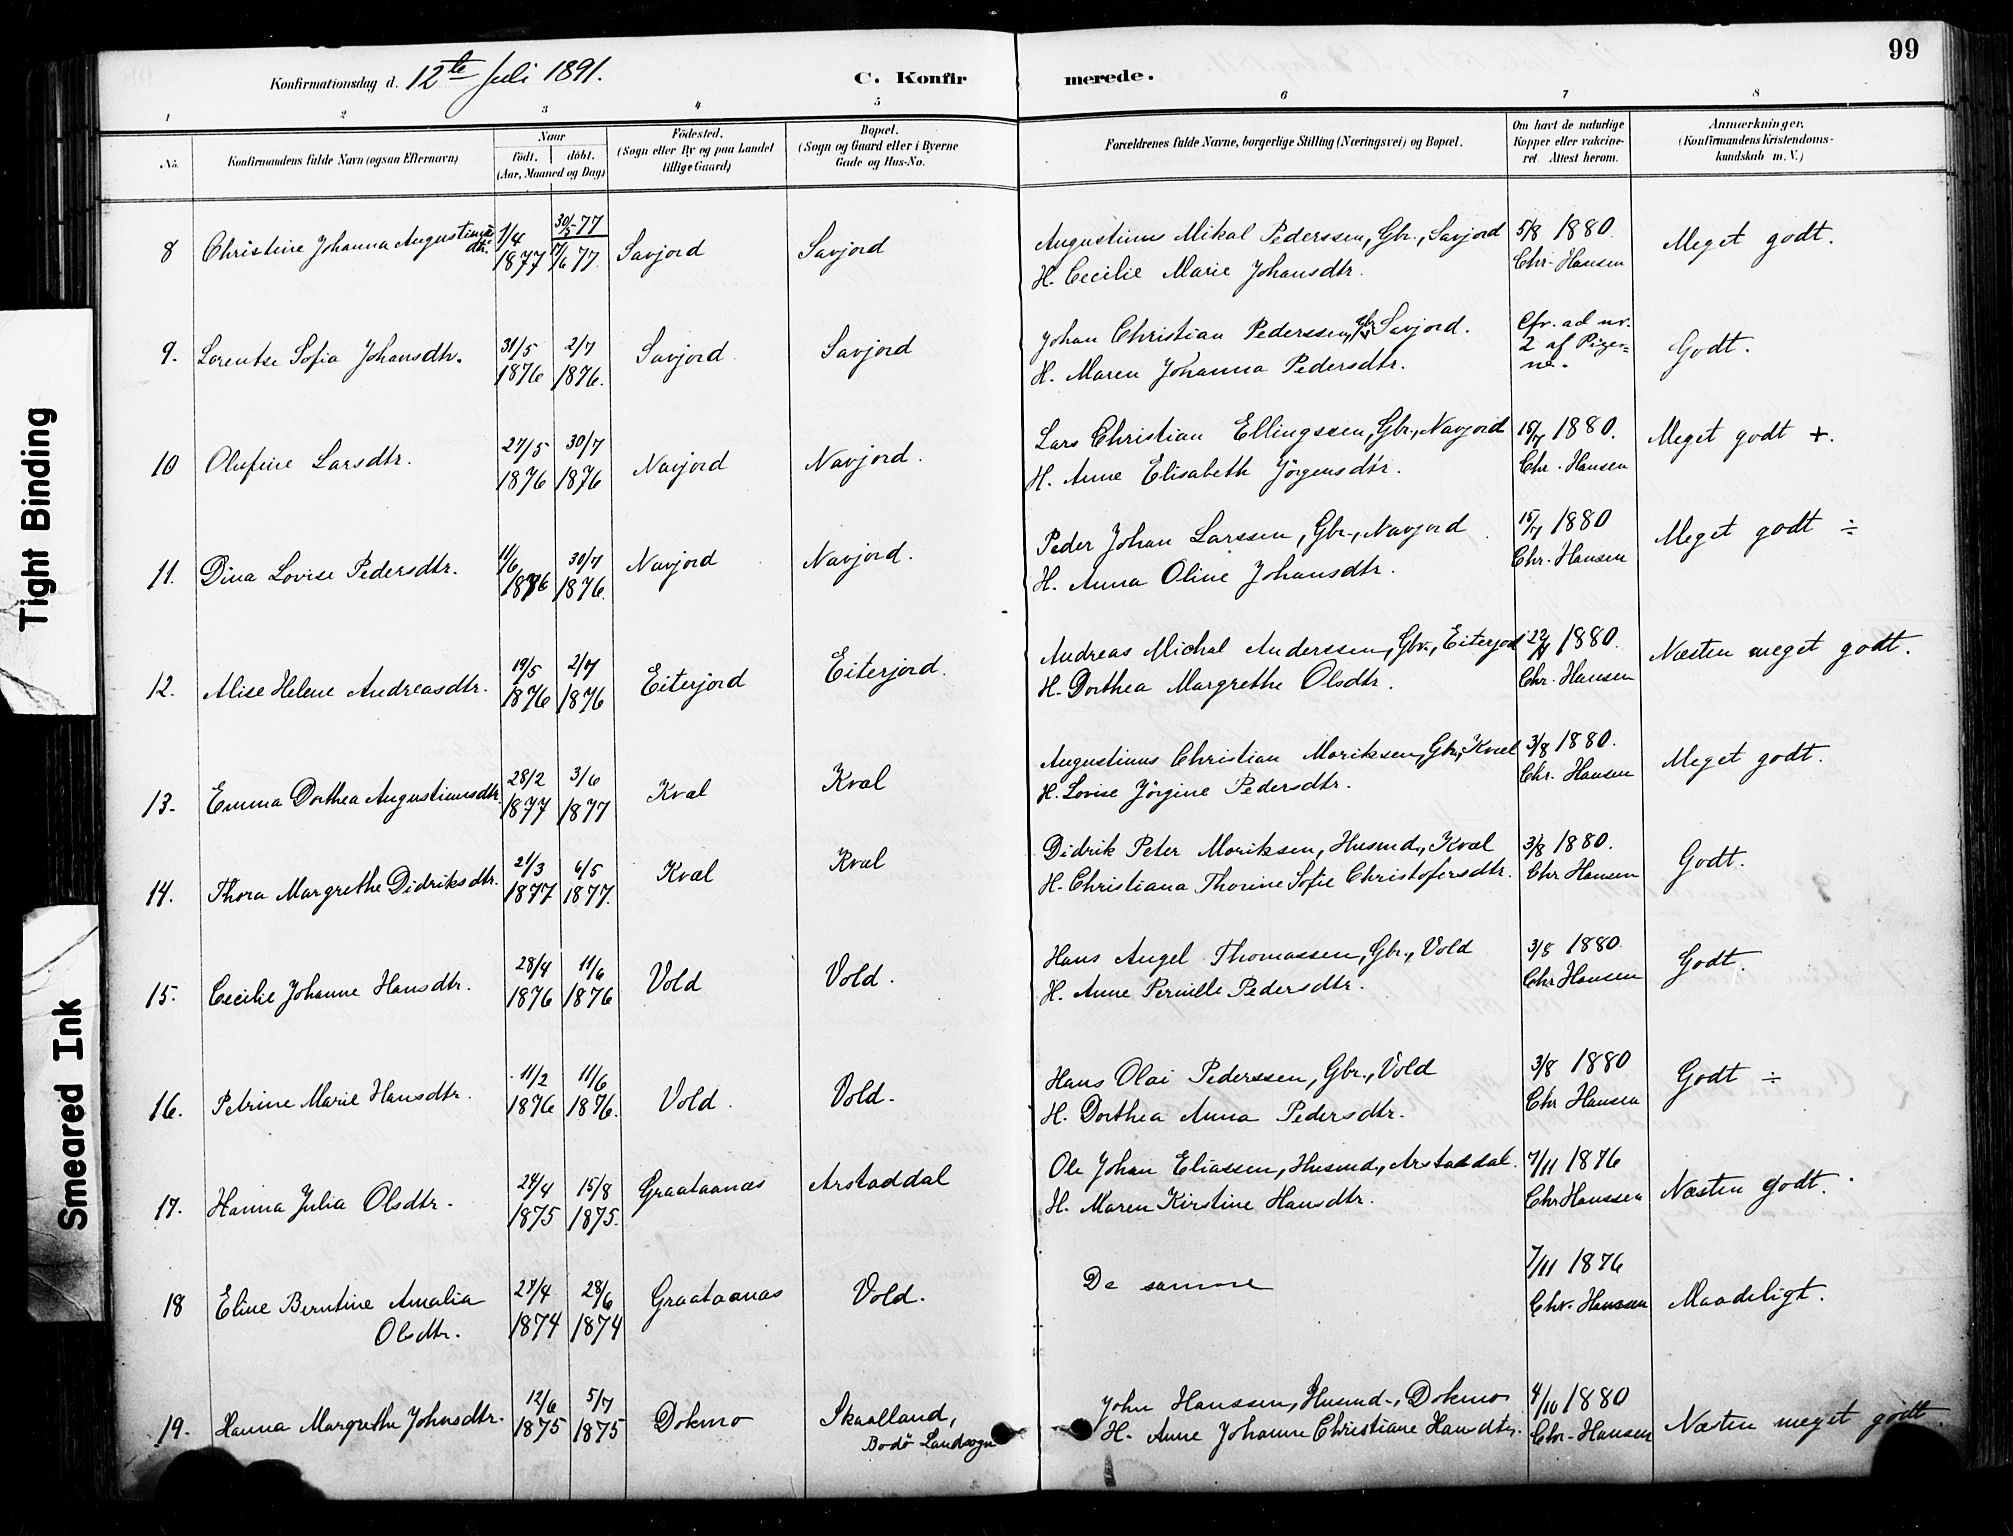 99
Konfirmationsdag d. 12te Juli 1891.
C. Konfirmerede.
1 2 3 4 5 6 7 8
No.
Konfirmandens fulde Navn (ogsaa Efternavn)
Naar
födt. döbt.
(Aar, Maaned og Dag)
Födested.
(Sogn eller By og paa Landet
tillige Gaard)
Bopæl.
(Sogn og Gaard eller i Byerne
Gade og Hus-No.
Forældrenes fulde Navne, borgerlige Stilling (Næringsvei) og Bopæl.
Om havt de naturlige
Kopper eller vakcine-
ret. Attest herom.
Anmærkninger.
(Konfirmandens Kristendoms-
kundskab m. V.)
8 Christine Johanna Augustinus
dtr. 1/4 1877 30/5 77 17/6 77. Savjord Savjord
Augustinus Mikal Pederssen, Gbr., Savjord
H. Cecilie Marie Johansdtr.
5/8 1880.
Chr. Hansen
Meget godt.
9. Lorentse Sofia Johansdtr. 31/5 1876 2/7 1876. Savjord Savjord
Johan Christian Pederssen, Gbr. Savjord.
H. Maren Johanna Pedersdtr.
Cfr. ad nr.
2 af Piger=
ne.
Godt.
10 Olufine Larsdtr. 27/5 1876 30/7 1876 Navjord Navjord.
Lars Christian Ellingssen, Gbr., Navjord
H. Anne Elisabeth Jörgensdtr.
15/7 1880.
Chr. Hansen
Meget godt +.
11. Dina Lovise Pedersdtr. 11/6 1876 30/7 1876. Navjord Navjord.
Peder Johan Larssen, Gbr., Navjord
H. Anna Oline Johansdtr.
15/7 1880
Chr. Hansen
Meget godt ÷
12. Alise Helene Andreasdtr. 19/5 1876 2/7 1876 Eiterjord Eiterjord.
Andreas Michal Anderssen, Gbr., Eiterjord
H. Dorthea Margrethe Olsdtr.
22/7 1880.
Chr. Hansen
Næsten meget godt.
13. Emma Dorthea Augustinusdtr. 28/2 1877 3/6 1877 Kvæl Kvæl
Augustinus Christian Moriksen, Gbr., Kvæl
H. Lovise Jörgine Pedersdtr.
3/8 1880.
Chr. Hansen
Meget godt.
14. Thora Margrethe Didriksdtr. 21/3 1877 6/5 1877. Kvæl Kvæl
Didrik Peter Moriksen, Husmd., Kvæl
H. Christiana Thorine Sofie Christofersdtr.
3/8 1880.
Chr Hansen
Godt.
15. Cecilie Johanne Hansdtr. 28/4 1876 11/6 1876 Vold Vold.
Hans Angel Thomassen, Gbr., Vold
H. Anne Pernille Pedersdtr.
3/8 1880.
Chr Hansen
Godt.
16. Petrine Marie Hansdtr. 11/2 1876 11/6 1876. Vold. Vold.
Hans Olai Pederssen, Gbr., Vold
H. Dorthea Anna Pedersdtr.
3/8 1880
Chr Hansen
Godt ÷
17. Hanna Julia Olsdtr. 24/4 1875 15/8 1875. Graataanæs Arstaddal
Ole Johan Eliassen, Husmd., Arstaddal.
H. Maren Kirstine Hansdtr.
7/11 1876
Chr Hanssen
Næsten godt.
18 Eline Berntine Amalia
Olsdtr. 27/4 1874 28/6 1874 Graataanæs Vold.
De samme
7/11 1876
Chr. Hanssen
Maadeligt.
19. Hanna Margrethe Johnsdtr. 12/6 1875 5/7 1875 Dokmo Skaalland,
Bodö Landsogn
John Hanssen, Husmd., Dokmo
H. Anne Johanne Christiane Hansdtr.
4/10 1880
Chr. Hansen
Næsten meget godt.
Tight Binding
Smeared Ink